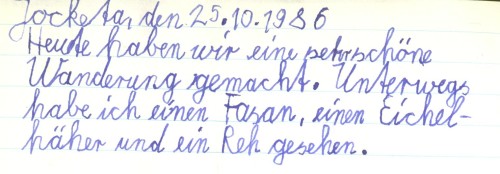 Jocketa, den 25.10.1986
Heute haben wir eine sehrschöne
Wanderung gemacht. Unterwegs
habe ich einen Fasan, einen Eichel-
häher und ein Reh gesehen.